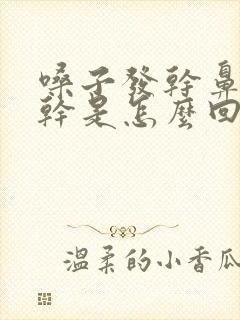 嗓子發幹鼻
幹是怎麼回
溫柔的小香瓜